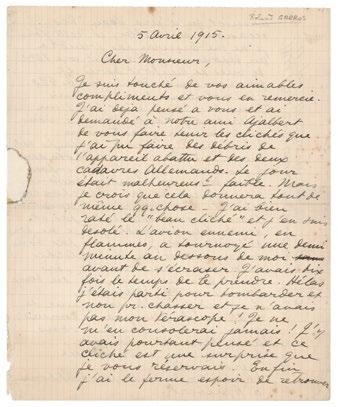 Roland GARROS
5 Avril 1915.
Cher Monsieur,
Je suis touché de vos aimables
compliments et vous en remercie.
J'ai déjà pensé à vous et ai
demandé à notre ami Ajalbert
de vous faire tenir les clichés que
j'ai pu faire des débris de
l'appareil abattu et des deux
cadavres Allemands. Le jour
était malheureust faible. Mais
je crois que cela donnera tout de
même qq. chose. J'ai bien
raté le "beau cliché" et j'en suis
désolé. L'avion ennemi, en
flammes, a tournoyé une demi
minute au dessous de moi
avant de s'écraser. J'avais dix
fois le temps de le prendre. Hélas
j'étais parti pour bombarder et
non pr. chasser et je n'avais
pas mon vérascope! Je ne
m'en consolerai jamais! J'y
avais pourtant pensé et ce
cliché est une surprise que
je vous réservais. Enfin
j'ai le ferme espoir de retrouver